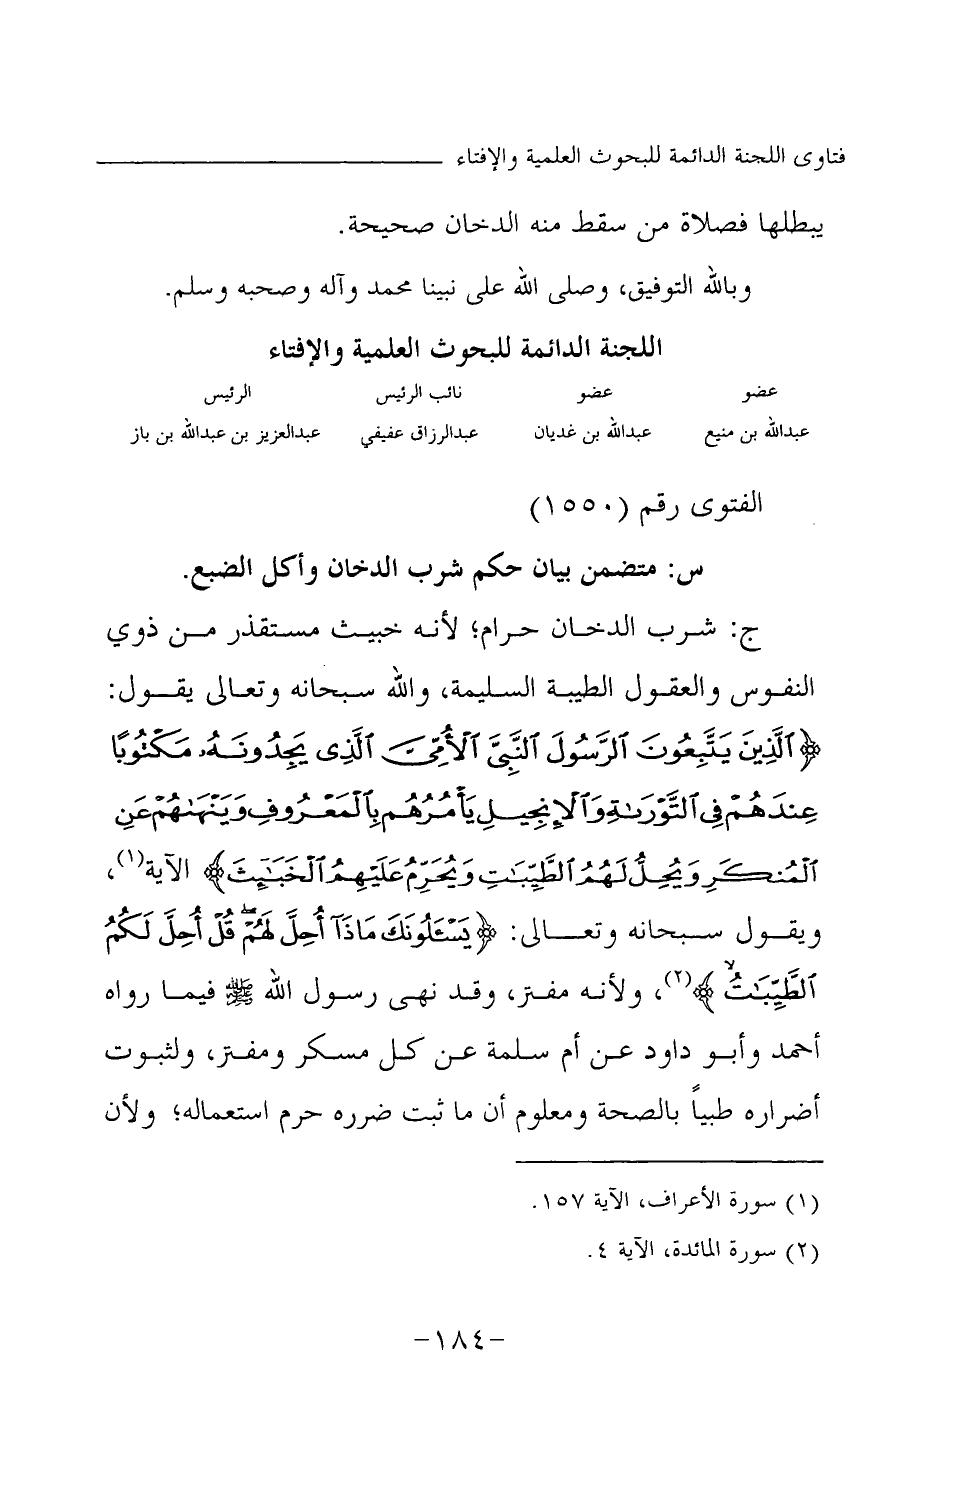 فتاوى اللجنة الدائمة للبحوث العلمية والإفتاء
يبطلها فصلاة من سقط منه الدخان صحيحة.
وبالله التوفيق، وصلى الله على نبينا محمد وآله وصحبه وسلم.
اللجنة الدائمة للبحوث العلمية والإفتاء
عضو عضو نائب الرئيس الرئيس
عبدالله بن منيع عبدالله بن غديان عبدالرزاق عفيفي عبدالعزيز بن عبدالله بن باز
الفتوى رقم (١٥٥٠)
س: متضمن بيان حكم شرب الدخان وأكل الضبع.
ج: شرب الدخان حرام؛ لأنه خبيث مستقذر من ذوي
النفوس والعقول الطيبة السليمة، والله سبحانه وتعالى يقول:
﴿ٱلَّذِينَ يَتَّبِعُونَ ٱلرَّسُولَ ٱلنَّبِىَّ ٱلْأُمِّىَّ ٱلَّذِى يَجِدُونَهُۥ مَكْتُوبًا
عِندَهُمْ فِى ٱلتَّوْرَىٰةِ وَٱلْإِنجِيلِ يَأْمُرُهُم بِٱلْمَعْرُوفِ وَيَنْهَىٰهُمْ عَنِ
ٱلْمُنكَرِ وَيُحِلُّ لَهُمُ ٱلطَّيِّبَـٰتِ وَيُحَرِّمُ عَلَيْهِمُ ٱلْخَبَـٰٓئِثَ﴾ الآية(١)،
ويقول سبحانه وتعالى: ﴿يَسْـَٔلُونَكَ مَاذَآ أُحِلَّ لَهُمْ ۖ قُلْ أُحِلَّ لَكُمُ
ٱلطَّيِّبَـٰتُ ۙ﴾(٢)، ولأنه مفتر، وقد نهى رسول الله ﷺ فيما رواه
أحمد وأبو داود عن أم سلمة عن كل مسكر ومفتر، ولثبوت
أضراره طبياً بالصحة ومعلوم أن ما ثبت ضرره حرم استعماله؛ ولأن
(١) سورة الأعراف، الآية ١٥٧.
(٢) سورة المائدة، الآية ٤.
-١٨٤-